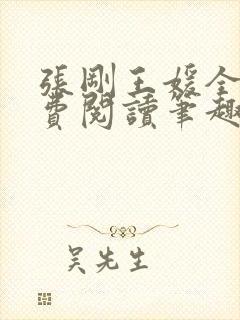 張剛王媛全
費閱讀筆趣
吴先生